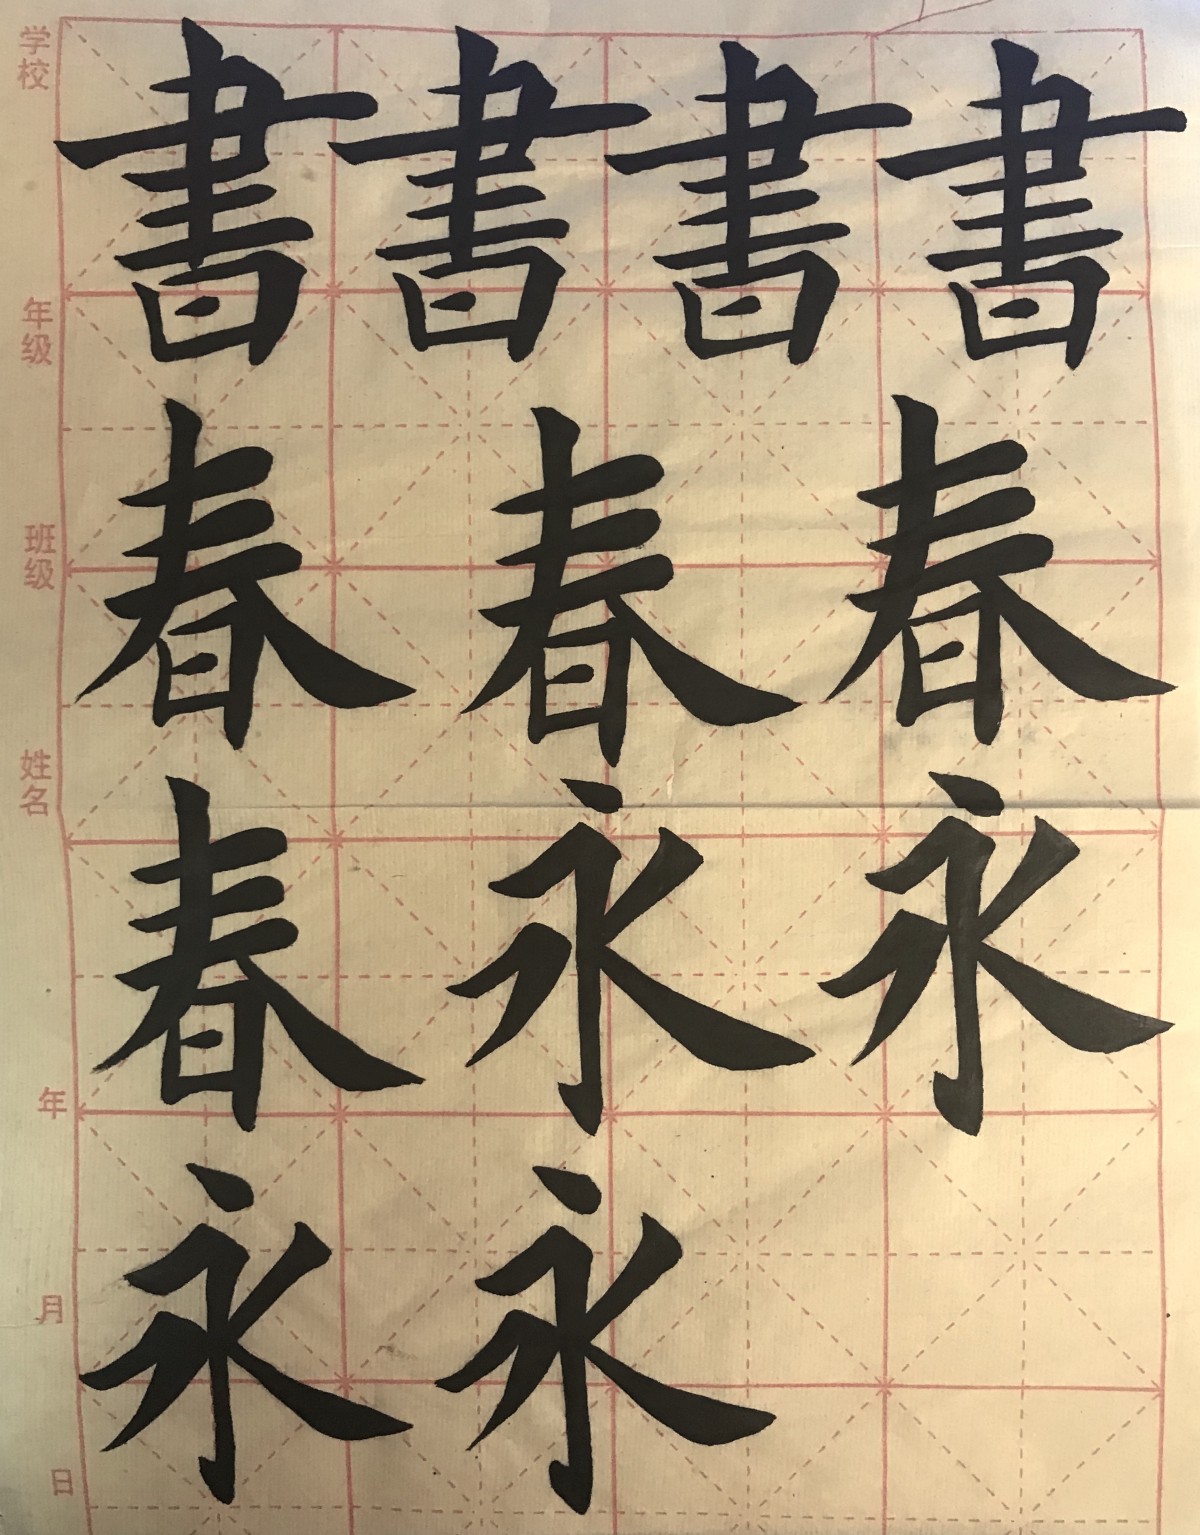 学校
年级
班级
姓名
年
月
日
書書書書
春春春
春永永
永永